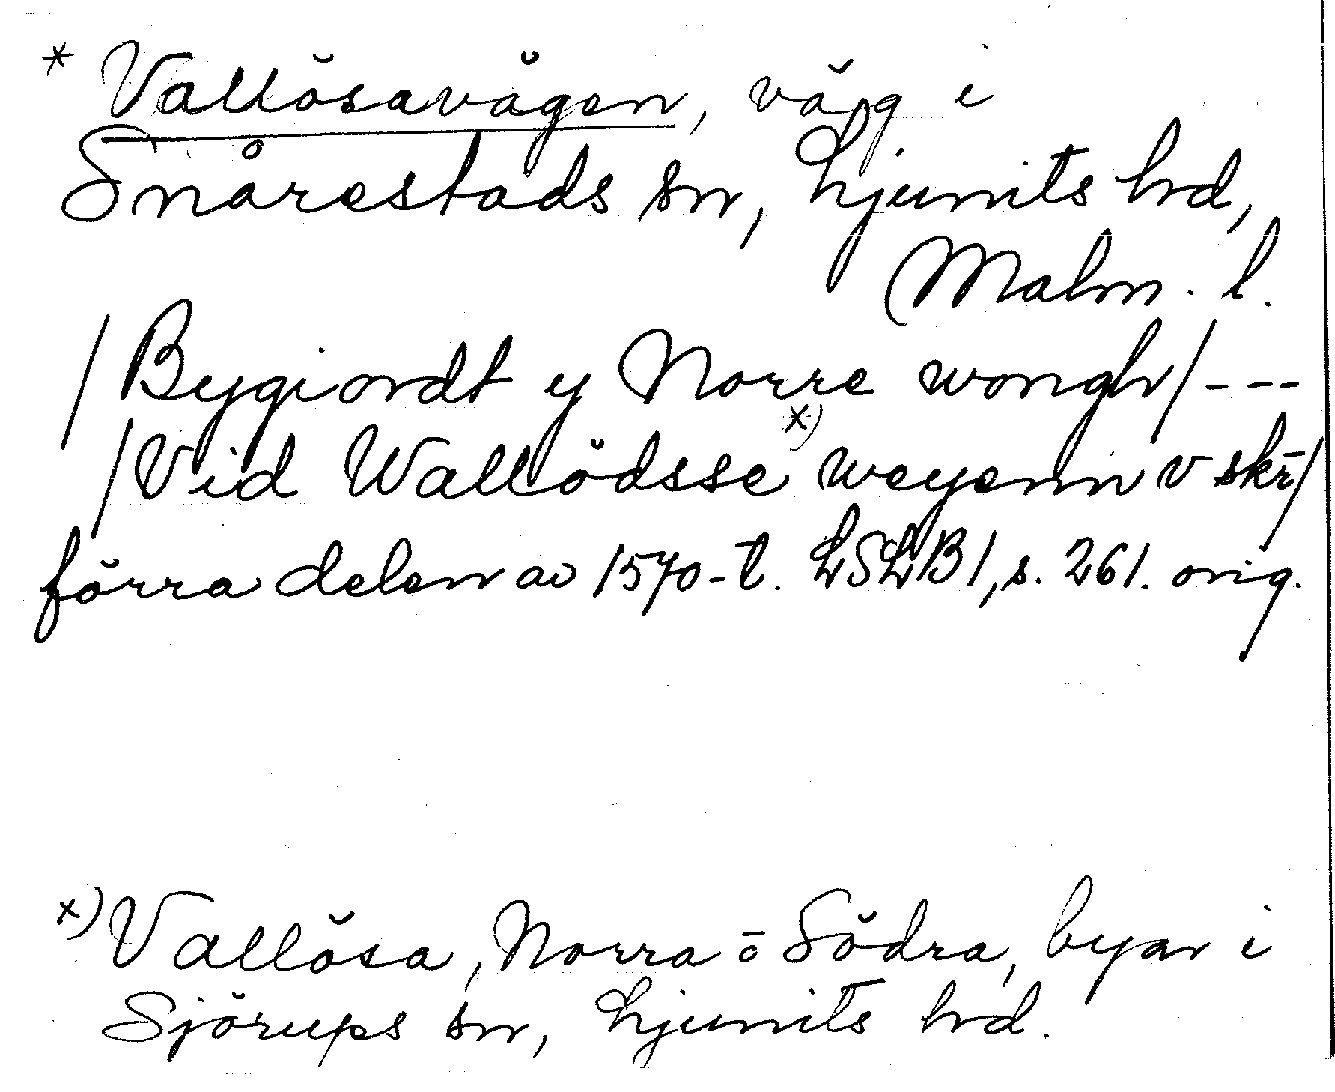 * Vallösavägen, väg i
Snårestads sn, Ljunits hrd,
Malm. l.
/Bygiordt y Norre wongh/---
/Vid Wallödsse x) weyenn v skr/
förra delen av 1570-t. LSLB1, s. 261. orig.
x) Vallösa, Norra o Södra, byar i
Sjörups sn, Ljunits hrd.